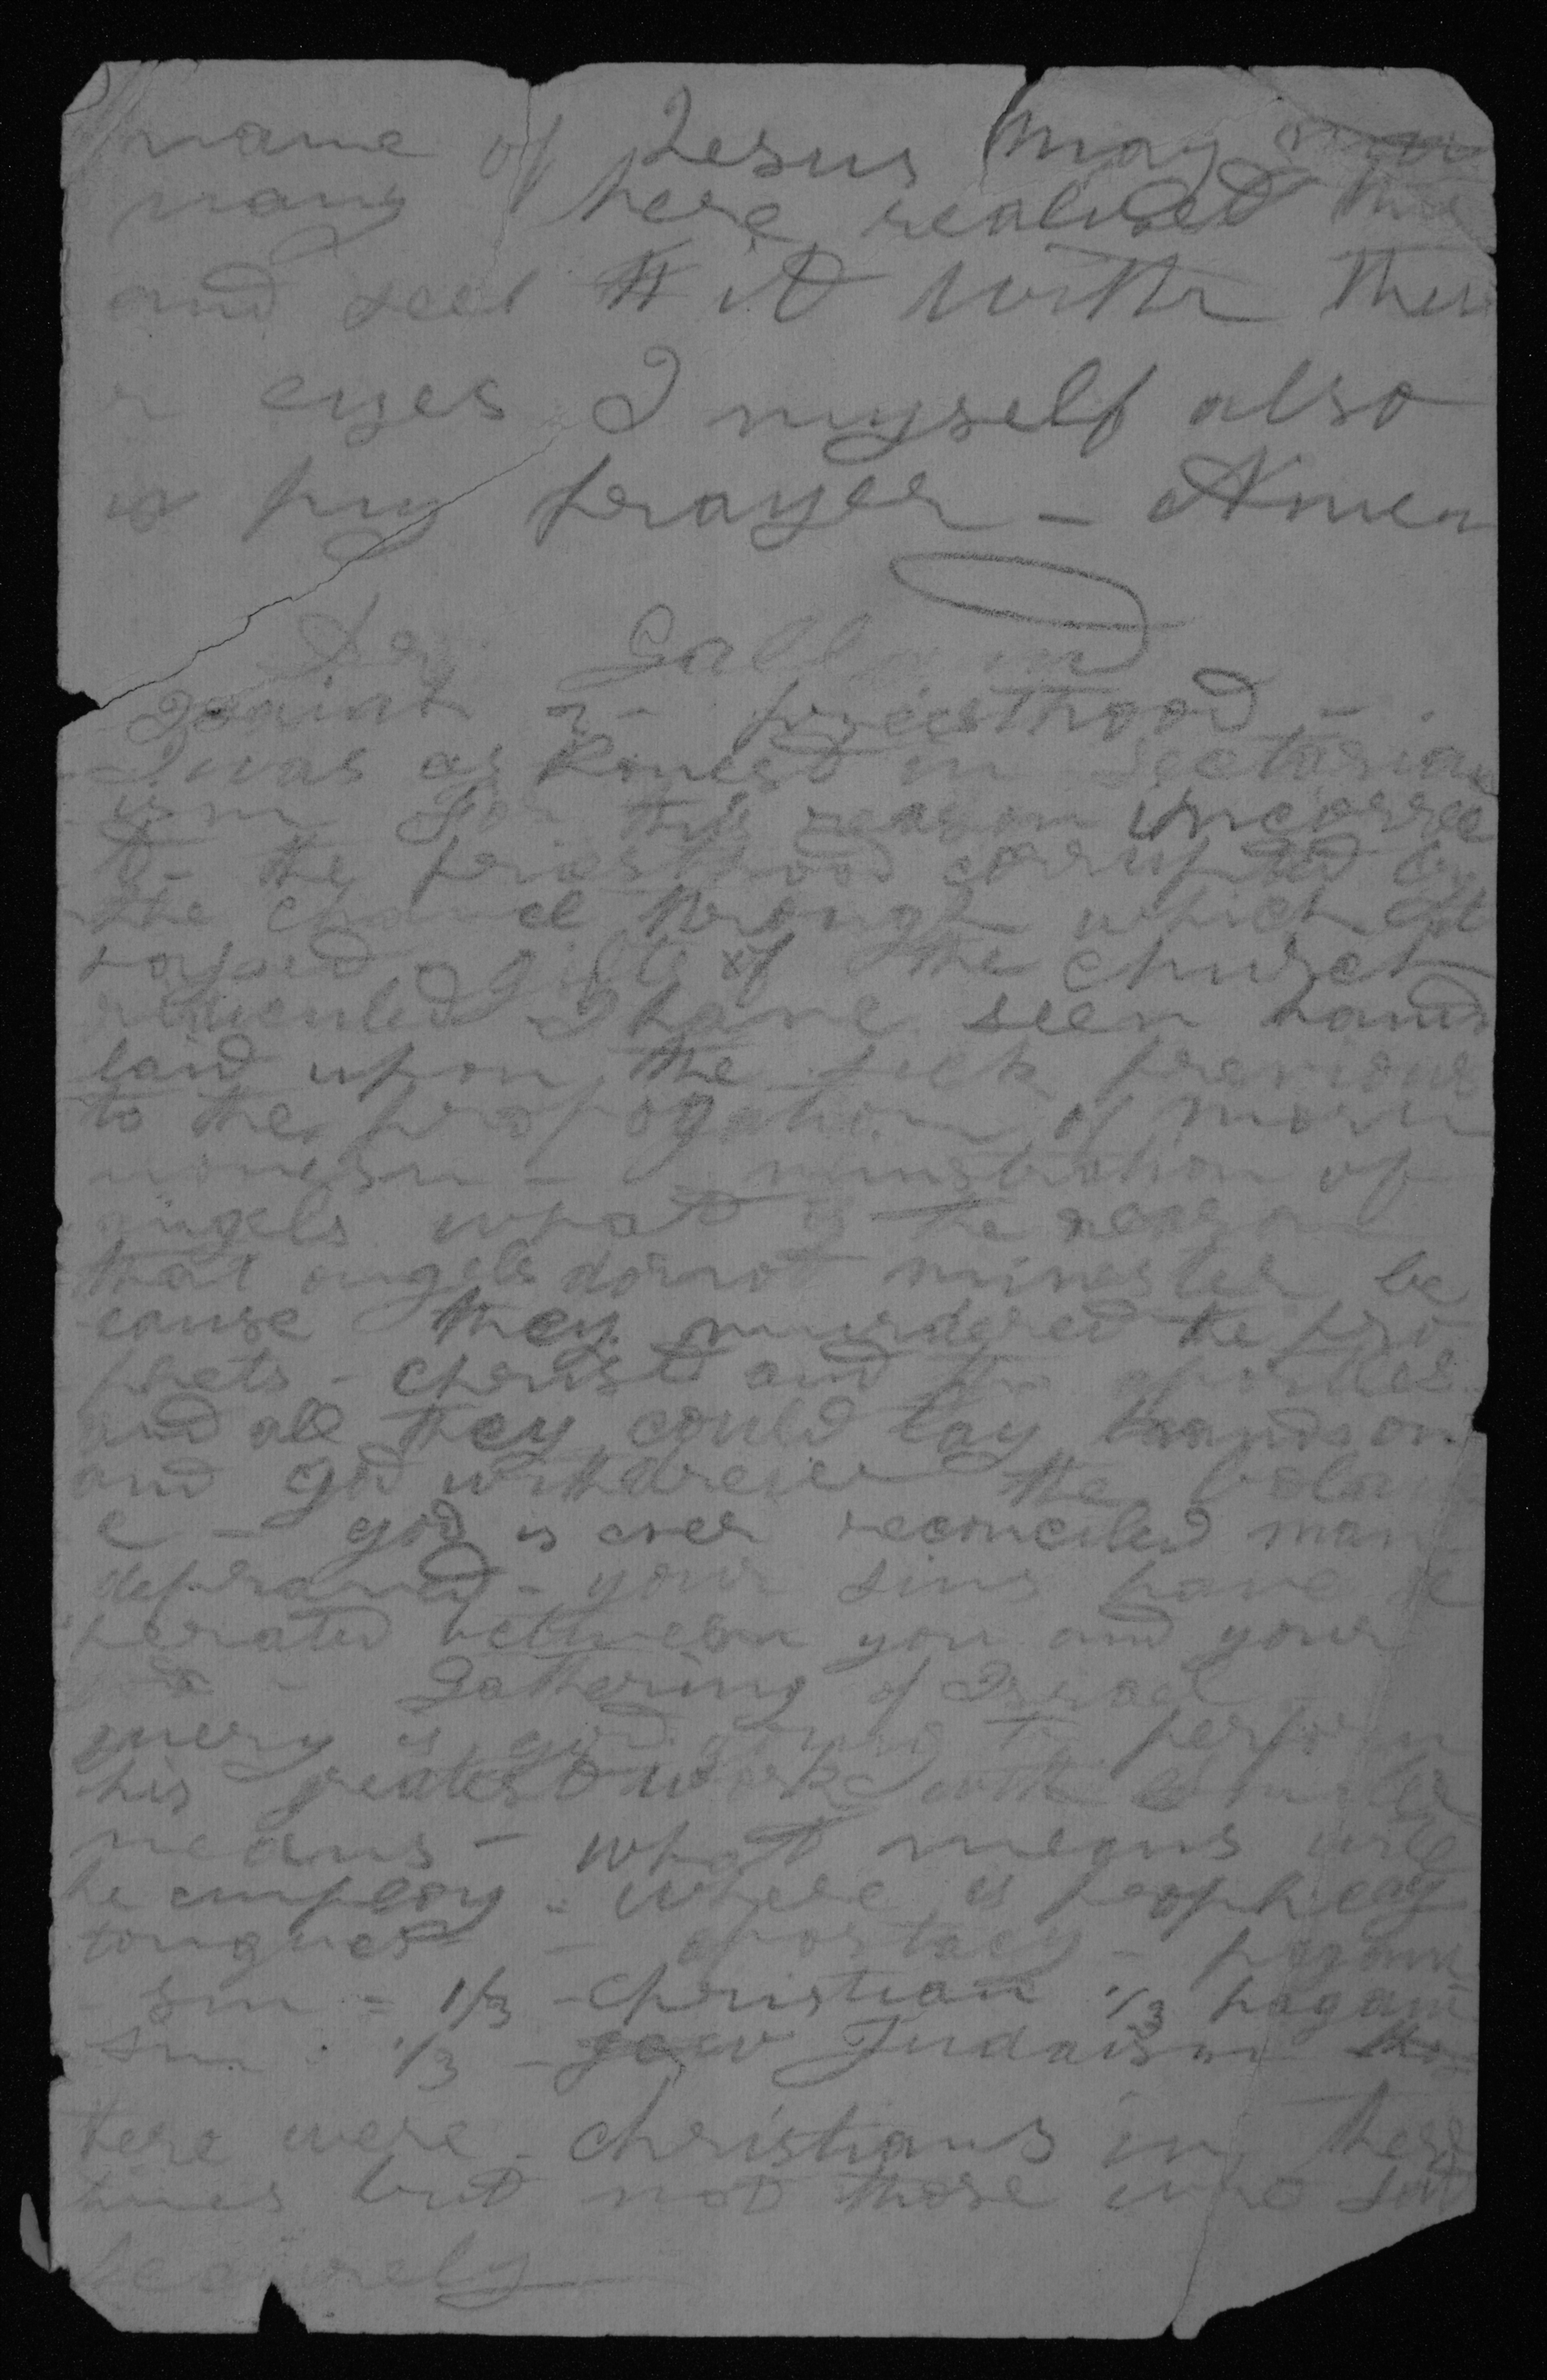 name of Jesus may
many here realised this
and see it with thei
r eyes I myself also
is my prayer - Amen
Dr Galland
Isaiah 2 - priesthood -
I was as Romesd in Sectarian
ism For this reason incorrec
t - the priesthood corrupted by
the channel through which it
passed - gifts of the church
rediculed I have seen hands
laid upon the sick previous
to the propogation of morm
onesm - ministration of
angels what is the reason
that angels do not minester be
cause they murdered the pro
phets - christ and the apostles
and all they could lay hands on
and god withdrew the balanc
e - god is ever reconciled man
depraved - your sins have se
perated between you and your
god - Gathering of Israel
query is god going to perform
his greatest work with simple
means - what means will
he employ - where is prophecy
tongues - apostacy - pagani
sm = 1/3 - christian 1/3 pagani
sm - 1/3 - jew Judaism tho
there were christians in these
times but not those who sat
securely